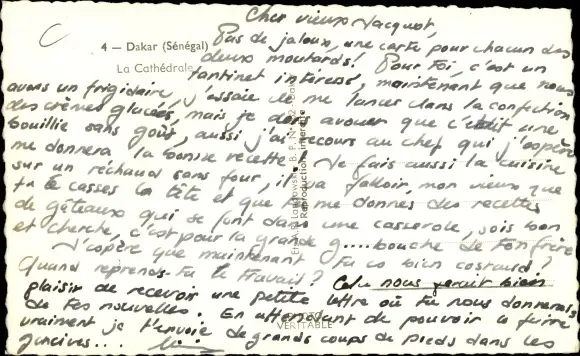 Cher vieux Jacquot,
4 — Dakar (Sénégal)
La Cathédrale
Pas de jaloux, une carte pour chacun des
deux moutards! Pour toi, c'est un
tantinet intéressé, maintenant que nous
avons un frigidaire, j'essaie de me lancer dans la confection
des crèmes glacées, mais je dois avouer que c'était une
bouillie sans goût, aussi j'ai recours au chef qui j'espère
me donnera la bonne recette. Je fais aussi la cuisine
sur un réchaud sans four, il va falloir, mon vieux que
tu te casses la tête et que tu me donnes des recettes
de gâteaux qui se font dans une casserole, sois bon
et cherche, c'est pour la grande g....bouche de ton frère
J'espère que maintenant tu es bien costaud?
Quand reprends-tu le travail? Cela nous ferait bien
plaisir de recevoir une petite lettre où tu nous donnerais
de tes nouvelles. En attendant de pouvoir le faire
vraiment je t'envoie de grands coups de pieds dans les
gencives....
Reproduction interdite
VÉRITABLE